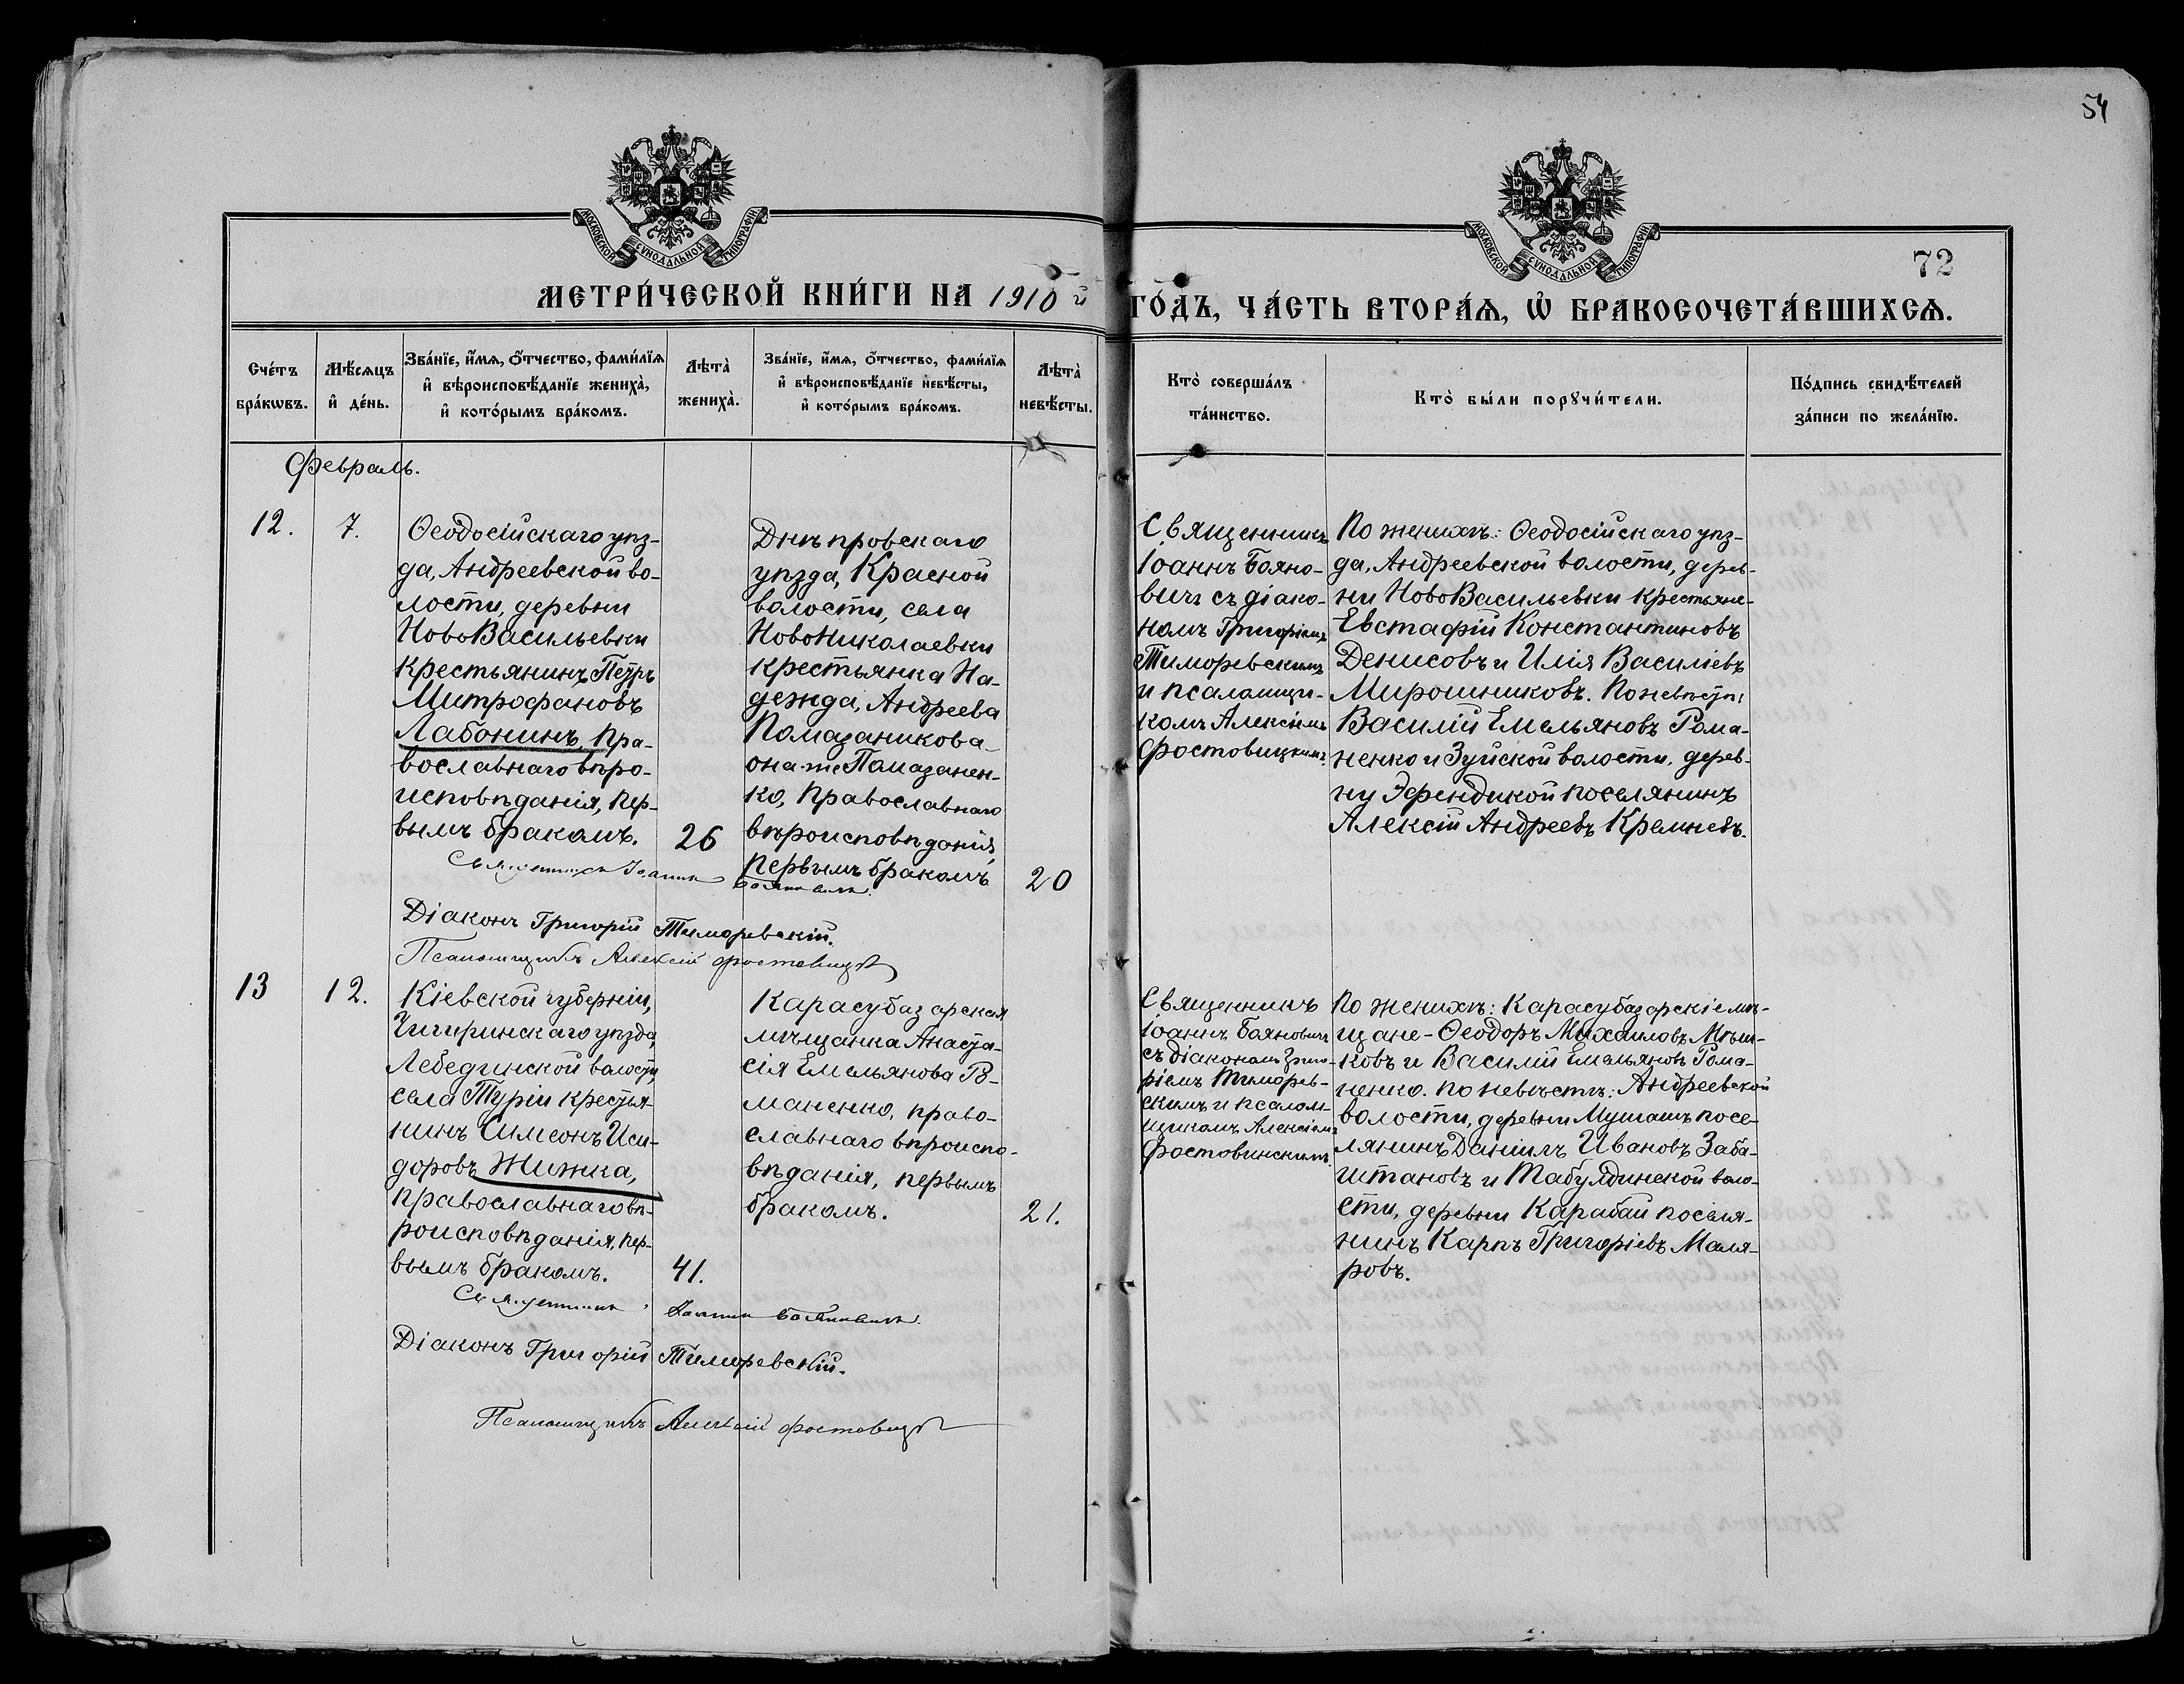 54
МОСКОВСКОЙ СѴНОДАЛЬНОЙ ТИПОГРАФІИ
МОСКОВСКОЙ СѴНОДАЛЬНОЙ ТИПОГРАФІИ
72
МЕТРИ́ЧЕСКОЙ КНИ́ГИ НА 1910 й
ГО́ДЪ, ЧА́СТЬ ВТОРА́Ѧ, Ѽ БРАКОСОЧЕТА́ВШИХСѦ.
Сче́тъ бра́кѡвъ.
Мѣ́сѧцъ и҆ де́нь.
Зва́нїе, и҆́мѧ, ѻ҆́тчество, фами́лїѧ
и҆ вѣроисповѣ́данїе жениха̀,
и҆ кото́рымъ бра́комъ.
Лѣта̀ жениха̀.
Зва́нїе, и҆́мѧ, ѻ҆́тчество, фами́лїѧ
и҆ вѣроисповѣ́данїе невѣ́сты,
и҆ кото́рымъ бра́комъ.
Лѣта̀ невѣ́сты.
Кто̀ соверша́лъ
та́инство.
Кто̀ бы́ли порꙋчи́тели.
По́дпись свидѣ́телей
за́писи по жела́нїю.
Февраль.
12.
7.
Ѳеодосійскаго уѣз-
да, Андреевской во-
лости, деревни
НовоВасильевки
крестьянинъ Петръ
Митрофановъ
Лабонинъ, пра-
вославнаго вѣро-
исповѣданія, пер-
вымъ бракомъ.
26
Днѣпровскаго
уѣзда, Красной
волости, села
НовоНиколаевки
крестьянка На-
дежда, Андреева
Помазаникова-
она-же Помазанен-
ко, православнаго
вѣроисповѣданія,
первымъ бракомъ
20
Священникъ
Іоаннъ Бояно-
вичъ съ діако-
номъ Григоріемъ
Тиморевскимъ
и псаломщи-
комъ Алексіемъ
Фостовицкимъ.
По женихѣ: Ѳеодосійскаго уѣз-
да, Андреевской волости, дерев-
ни НовоВасильевки крестьяне-
Евстафій Константиновъ
Денисовъ и Илія Василіевъ
Мирошниковъ. По невѣстѣ:
Василій Емельяновъ Рома-
ненко и Зуйской волости, дерев-
ни Эфендикой поселянинъ
Алексій Андреевъ Кремневъ.
Священникъ Іоаннъ Бояновичъ.
Діаконъ Григорій Тиморевскій.
Псаломщикъ Алексій Фостовицкій
13
12.
Кіевской губерніи,
Чигиринскаго уѣзда,
Лебединской волости,
села Туріи крестья-
нинъ Симеонъ Иси-
доровъ Жижка,
православнаго вѣ-
роисповѣданія, пер-
вымъ бракомъ.
41.
Карасубазарская
мѣщанка Анаста-
сія Емельянова Ро-
маненко, право-
славнаго вѣроиспо-
вѣданія, первымъ
бракомъ.
21.
Священникъ
Іоаннъ Бояновичъ
съ діакономъ Григо-
ріемъ Тиморев-
скимъ и псалом-
щикомъ Алексіемъ
Фостовицкимъ.
По женихѣ: Карасубазарскіе мѣ-
щане - Ѳеодоръ Михаиловъ Мѣш-
ковъ и Василій Емельяновъ Рома-
ненко. по невѣстѣ: Андреевской
волости, деревни Мушашъ посе-
лянинъ Даніилъ Ивановъ Заба-
штановъ и Табулдинской воло-
сти, деревни Карабай поселя-
нинъ Карпъ Григоріевъ Маля-
ровъ.
Священникъ Іоаннъ Бояновичъ.
Діаконъ Григорій Тиморевскій.
Псаломщикъ Алексій Фостовицкій